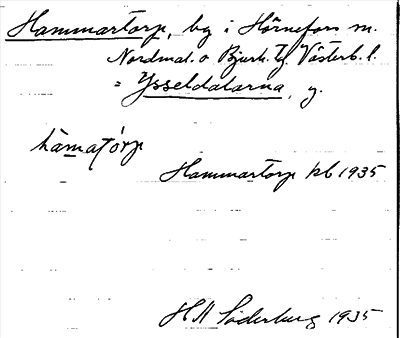 Hammartorp, by i Hörnefors sn.
Nordmal. o Bjurh. tg Västerb. l.
= Ysseldalarna, g.
hàmatórp
Hammartorp kb 1935
H N Söderberg 1935